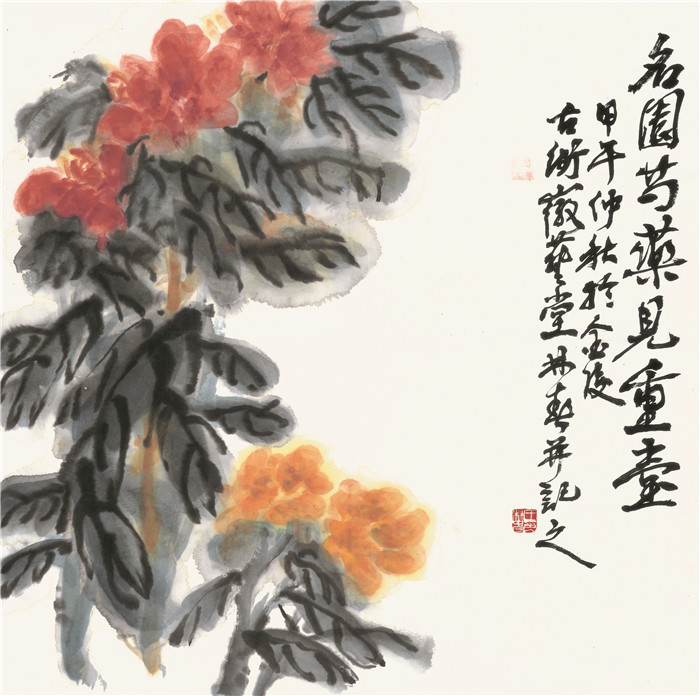 名園芍藥見重臺
甲午仲秋於金陵
古衛嶶藝堂林春并記之